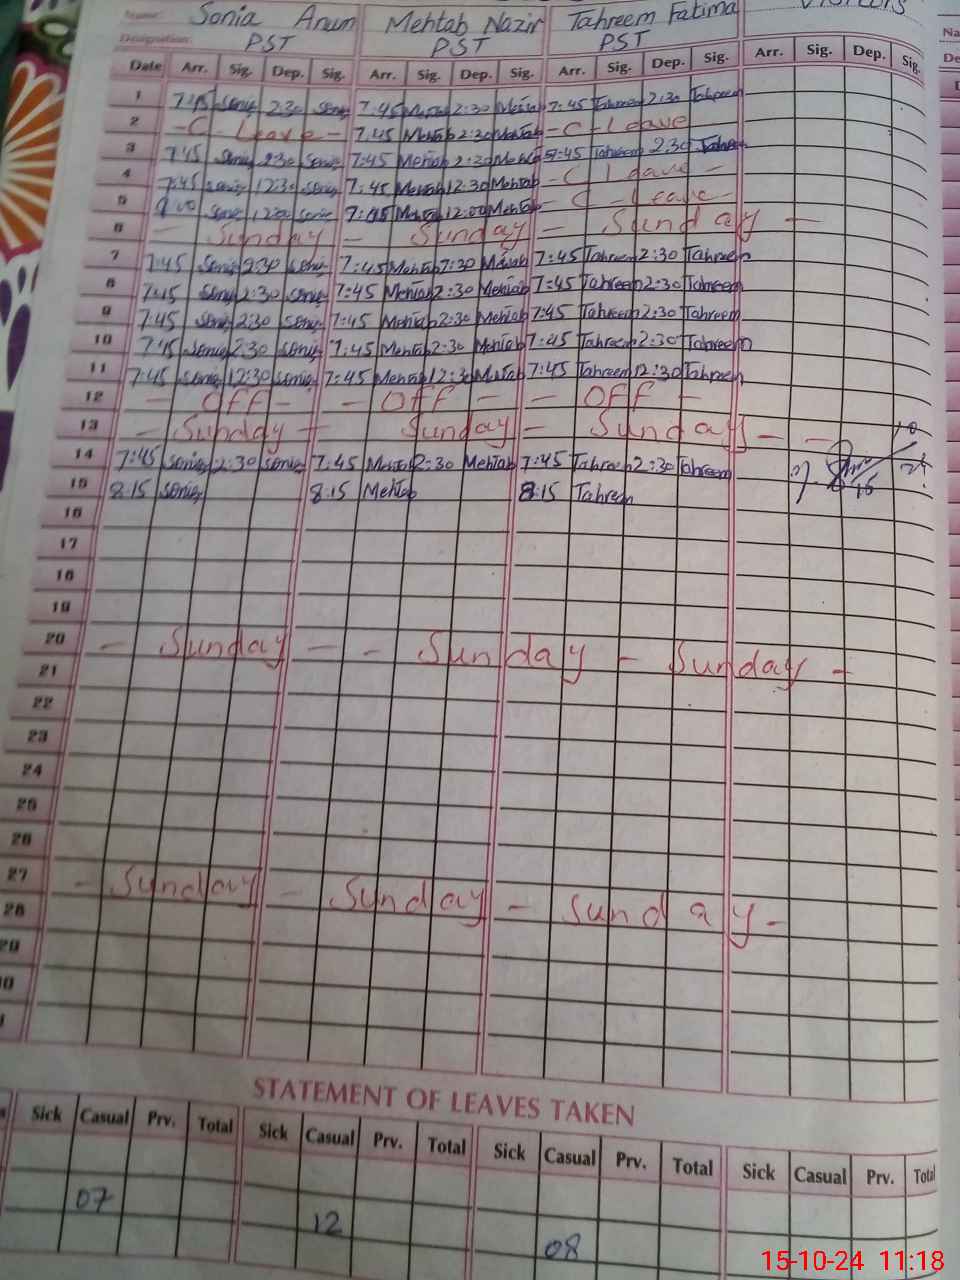 Name: Sonia Arun Mehtab Nazir Tahreem Fatima
Designation: PST PST PST
Date Arr. Sig. Dep. Sig. Arr. Sig. Dep. Sig. Arr. Sig. Dep. Sig. Arr. Sig. Dep. Sig.
1 7:45 Sonia 2:30 Sonia 7:45 Mehtab 2:30 Mehtab 7:45 Tahreem 2:30 Tahreem
2 - C - Leave - 7:45 Mehtab 2:30 Mehtab - C - Leave
3 7:45 Sonia 2:30 Sonia 7:45 Mehtab 2:30 Mehtab 7:45 Tahreem 2:30 Tahreem
4 7:45 Sonia 12:30 Sonia 7:45 Mehtab 12:30 Mehtab - C Leave -
5 Sonia Sonia 7:45 Mehtab 12:00 Mehtab - C - Leave -
6 - Sunday - Sunday - Sunday -
7 7:45 Sonia 2:30 Sonia 7:45 Mehtab 2:30 Mehtab 7:45 Tahreem 2:30 Tahreem
8 7:45 Sonia 2:30 Sonia 7:45 Mehtab 2:30 Mehtab 7:45 Tahreem 2:30 Tahreem
9 7:45 Sonia 2:30 Sonia 7:45 Mehtab 2:30 Mehtab 7:45 Tahreem 2:30 Tahreem
10 7:45 Sonia 2:30 Sonia 7:45 Mehtab 2:30 Mehtab 7:45 Tahreem 2:30 Tahreem
11 7:45 Sonia 12:30 Sonia 7:45 Mehtab 12:30 Mehtab 7:45 Tahreem 12:30 Tahreem
12 - OFF - - OFF - - OFF -
13 - Sunday - Sunday - Sunday - -
14 7:45 Sonia 2:30 Sonia 7:45 Mehtab 2:30 Mehtab 7:45 Tahreem 2:30 Tahreem
15 8:15 Sonia 8:15 Mehtab 8:15 Tahreem
16
17
18
19
20 - Sunday - - Sunday - Sunday -
21
22
23
24
25
26
27 - Sunday - Sunday - Sunday -
28
29
STATEMENT OF LEAVES TAKEN
Sick Casual Prv. Total Sick Casual Prv. Total Sick Casual Prv. Total Sick Casual Prv. Total
07 12 08
15-10-24 11:18